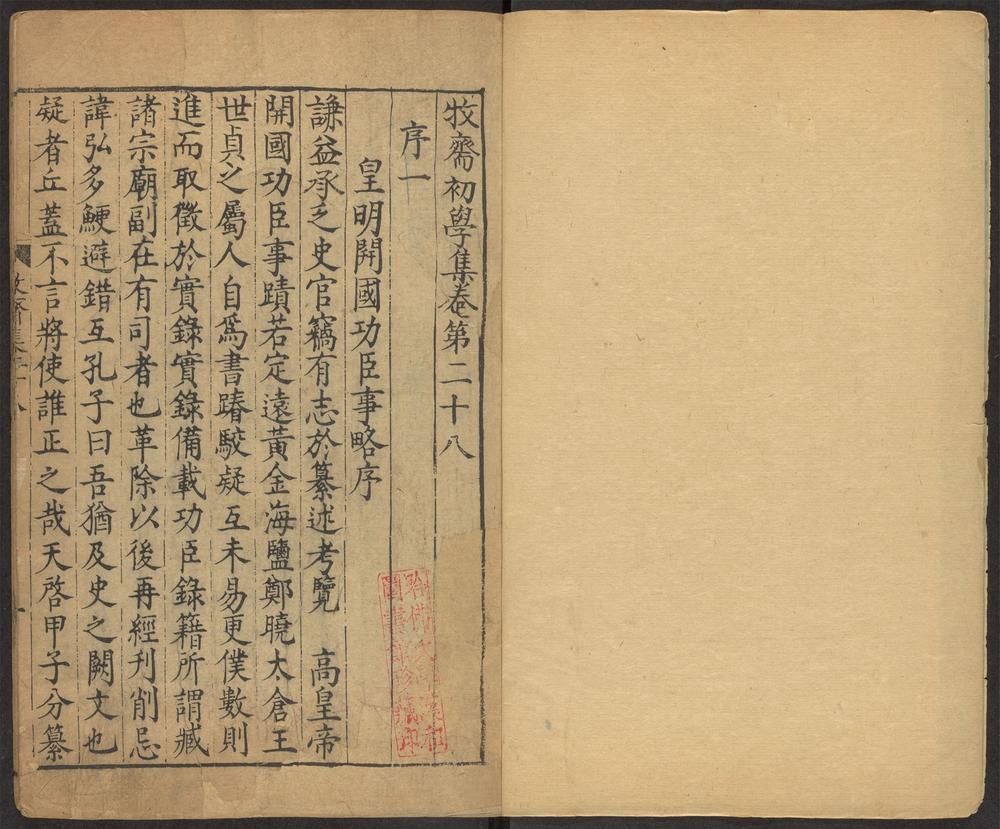 牧齋初學集卷第二十八
序一
皇明開國功臣事略序
謙益承乏史官竊有志於纂述考覽　高皇帝
開國功臣事蹟若定遠黃金海鹽鄭曉太倉王
世貞之屬人自爲書踳駮疑互未易更僕數則
進而取徵於實錄實錄備載功臣錄籍所謂臧
諸宗廟副在有司者也革除以後再經刊削忌
諱弘多鯁避錯互孔子曰吾猶及史之闕文也
疑者丘蓋不言將使誰正之哉天啓甲子分纂